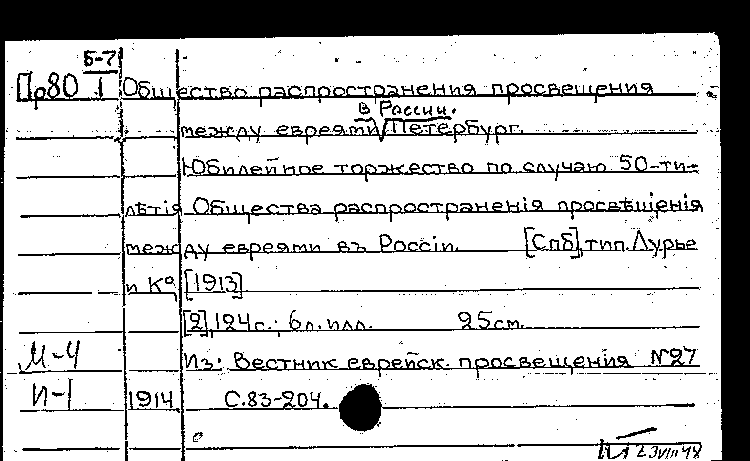 Б-7
Пр80 1 Общество распространения просвещения
в России.
между евреями Петербург.
Юбилейное торжество по случаю 50-ти-
лѣтія Общества распространенія просвѣщенія
между евреями въ Россіи. [Спб], тип. Лурье
и Ко [1913]
[2], 124 с.; 6 л. илл. 25 см.
М-4 Из: Вестник еврейск. просвещения №27
И-1 1914 С. 83-204.
23 VIII 48